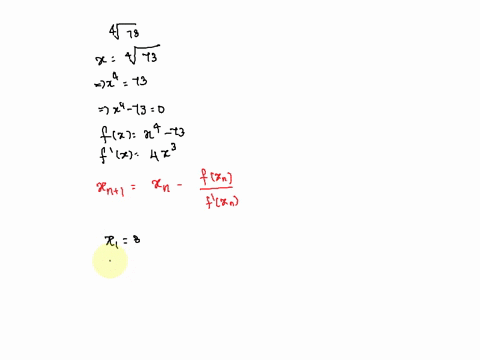 ⁴√78
x = ⁴√73
=> x⁴ = 73
=> x⁴ - 73 = 0
f(x) = x⁴ - 73
f'(x) = 4x³
xₙ₊₁ = xₙ - f(xₙ)/f'(xₙ)
x₁ = 8